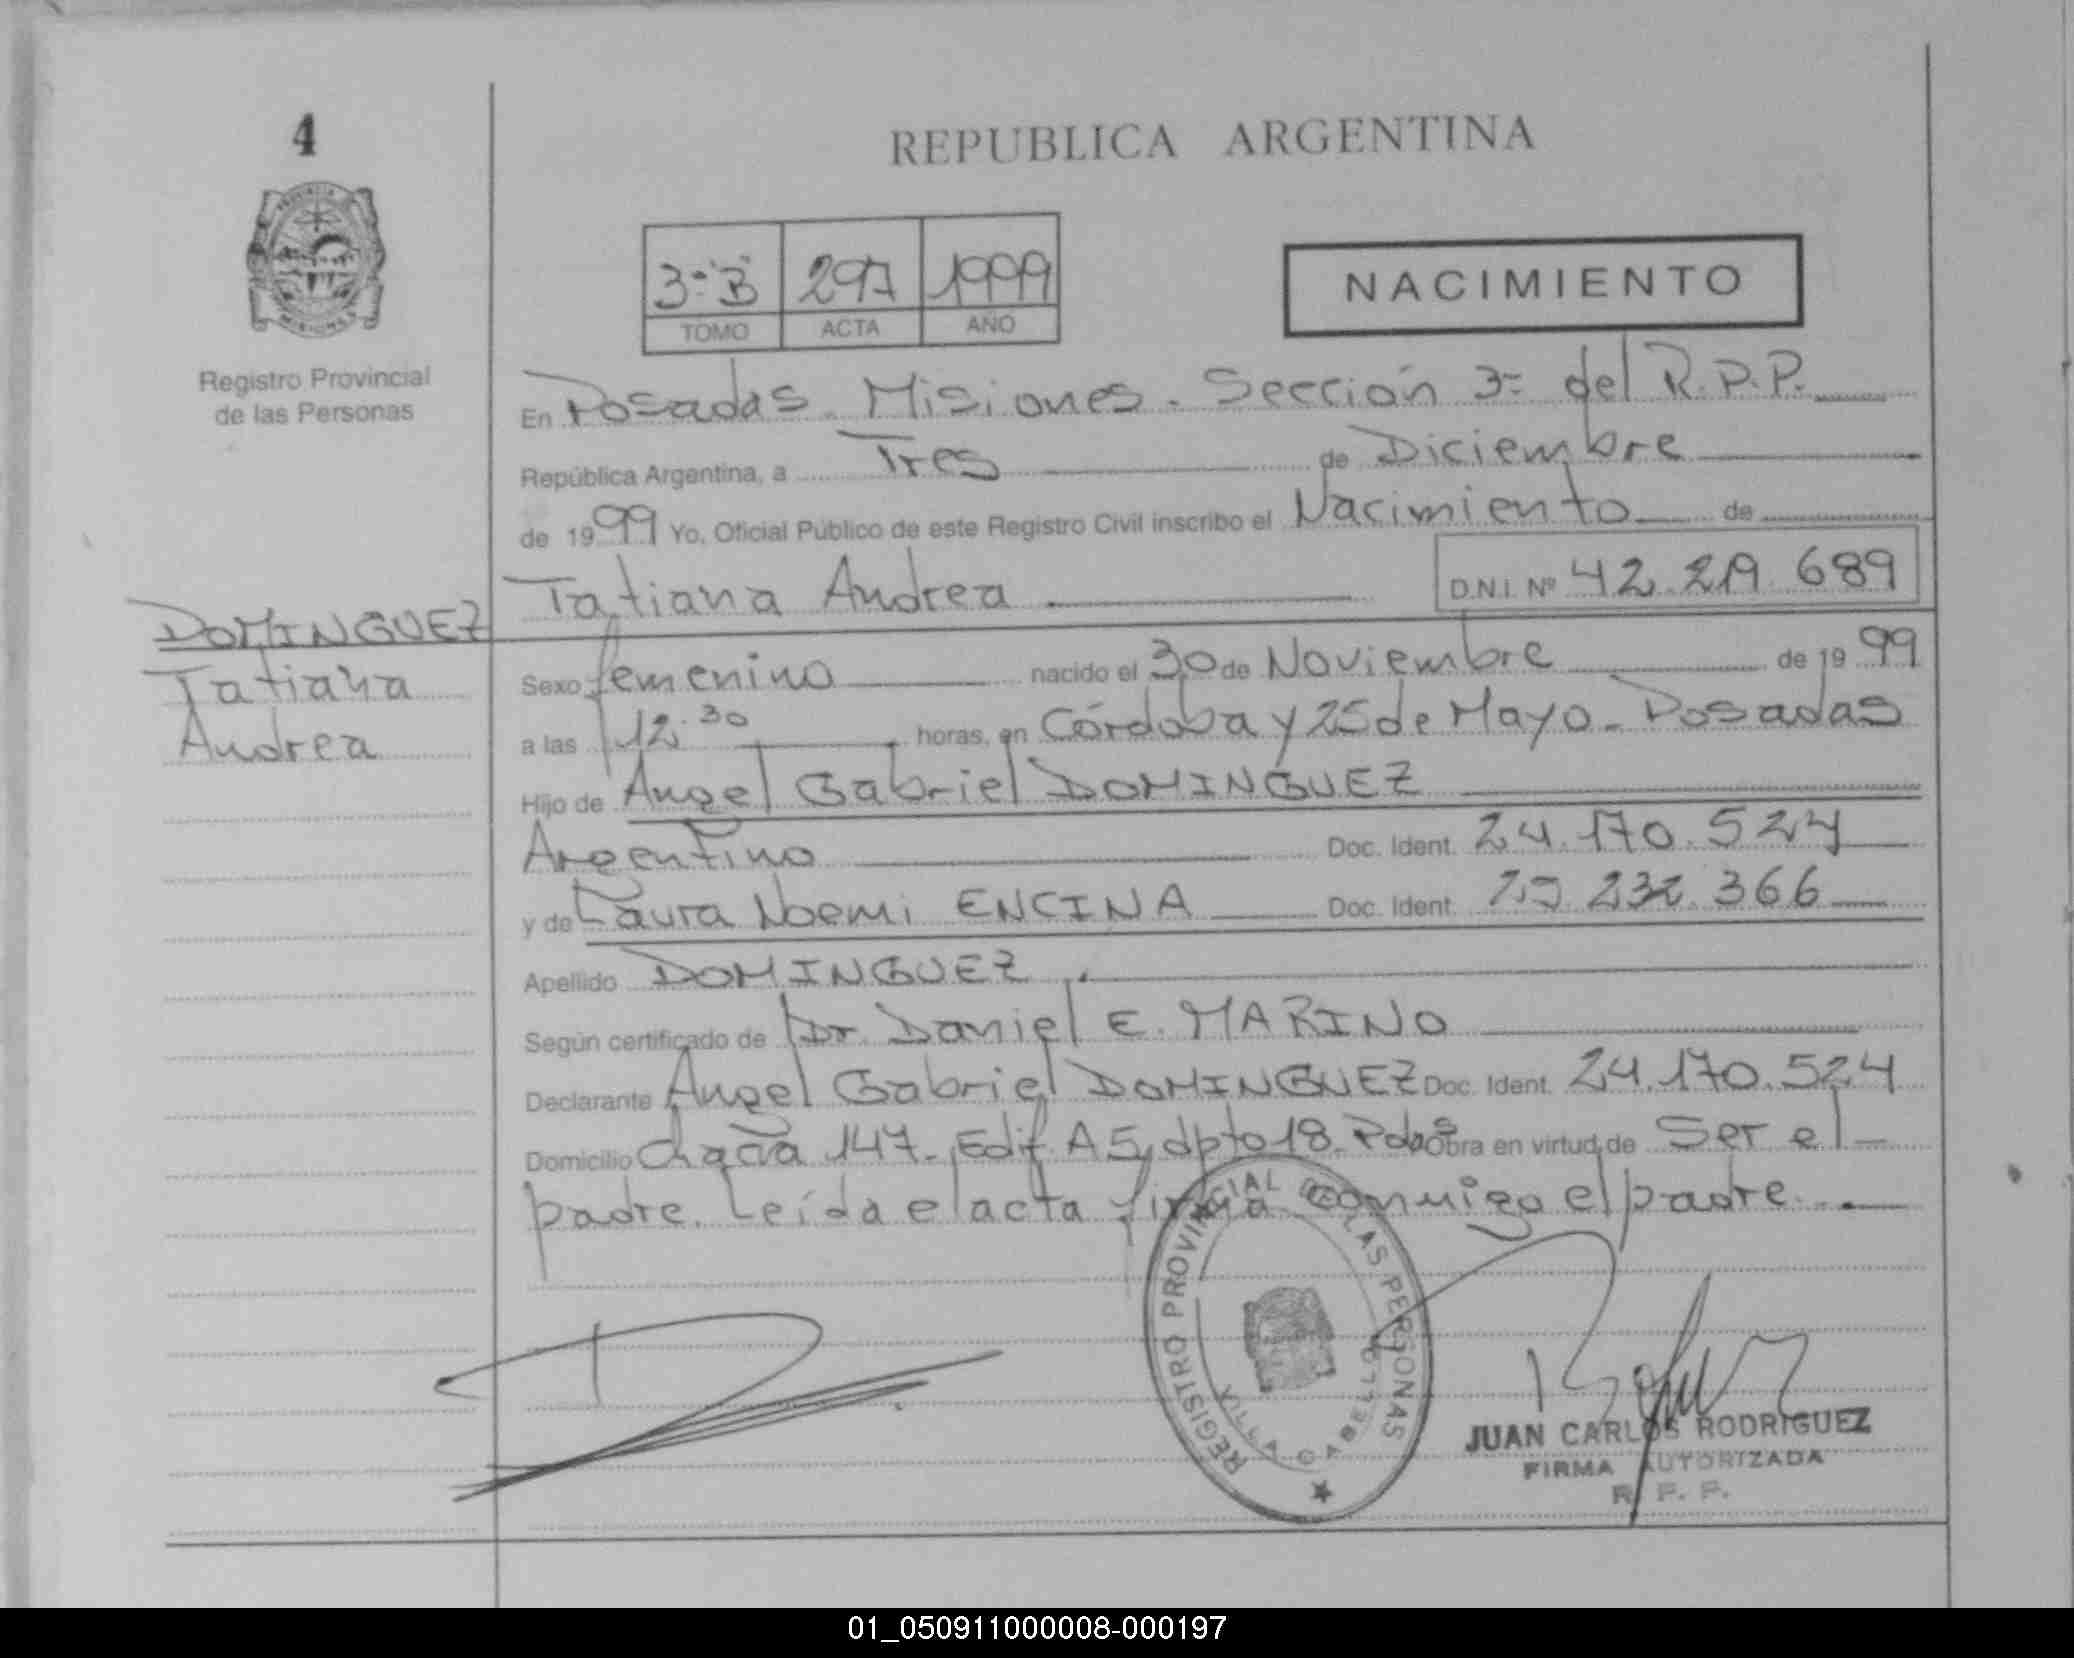 4
PROVINCIA
MISIONES
Registro Provincial
de las Personas
REPUBLICA ARGENTINA
3ª "B" 297 1999
TOMO ACTA AÑO
NACIMIENTO
En Posadas. Misiones. Sección 3ª del R.P.P.
República Argentina, a Tres de Diciembre
de 1999 Yo, Oficial Público de este Registro Civil inscribo el Nacimiento de
Tatiana Andrea D.N.I. Nº 42.219.689
DOMINGUEZ
Tatiana
Andrea
Sexo femenino nacido el 30 de Noviembre de 1999
a las 12.30 horas, en Córdoba y 25 de Mayo - Posadas
Hijo de Angel Gabriel DOMINGUEZ
Argentino Doc. Ident. 24.170.524
y de Laura Noemi ENCINA Doc. Ident. 232.366
Apellido DOMINGUEZ.
Según certificado de Dr. Daniel E. MARINO
Declarante Angel Gabriel DOMINGUEZ Doc. Ident. 24.170.524
Domicilio 147 - Edif. A5, dpto 18. Pdas Obra en virtud de Ser el
padre. Leída el acta firma conmigo el padre.
REGISTRO PROVINCIAL DE LAS PERSONAS
VILLA CABELLO
JUAN CARLOS RODRIGUEZ
FIRMA AUTORIZADA
R. P. P.
01_050911000008-000197